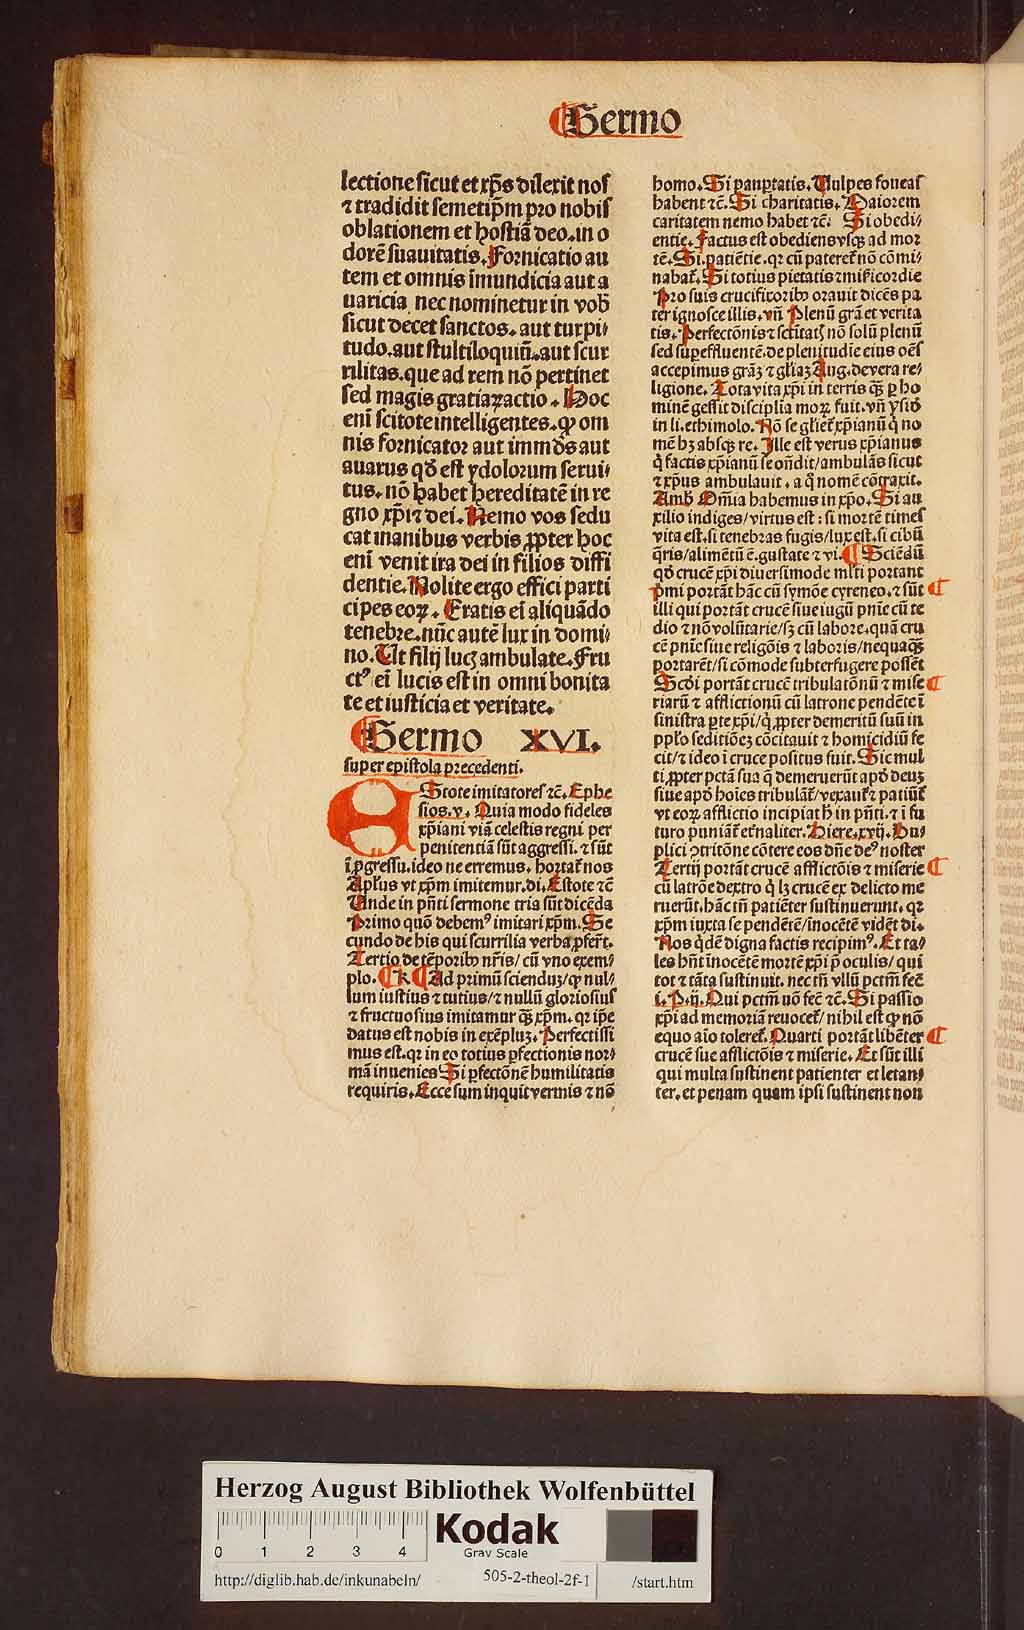 Sermo
lectione sicut et xp̄s dilexit nos
⁊ tradidit semetip̄m pro nobis
oblationem et hostiā deo. in o
dorē suauitatis. Fornicatio au
tem et omnis īmundicia aut a
uaricia nec nominetur in vob̄
sicut decet sanctos. aut turpi⸗
tudo. aut stultiloquiū. aut scur
rilitas. que ad rem nō pertinet
sed magis gratiaꝝ actio. Hoc
enī scitote intelligentes. ꝙ om
nis fornicator aut immōs aut
auarus qḋ est ydolorum serui⸗
tus. nō habet hereditatē in re
gno xp̄i ⁊ dei. Nemo vos sedu
cat inanibus verbis ꝓpter hoc
enī venit ira dei in filios diffi
dentie. Nolite ergo effici parti
cipes eoꝝ. Eratis eī aliquādo
tenebre. nūc autē lux in domi⸗
no. Ut filij lucꝭ ambulate. Fru
ctꝰ eī lucis est in omni bonita
te et iusticia et veritate.
Sermo XVI.
super epistola precedenti.
EStote imitatores ⁊c̄. Ephe
sios. v. Quia modo fideles
xp̄iani viā celestis regni per
penitentiā sūt aggressi. ⁊ sūt
ī ꝓgressu. ideo ne erremus. hortat᷑ nos
Apl̄us vt xp̄m imitemur. di. Estote ⁊c̄
Unde in pn̄ti sermone tria sūt dicēda
Primo quō debemꝰ imitari xp̄m. Se
cundo de his qui scurrilia verba ꝓfer̄t.
Tertio de tēporibꝰ nr̄is / cū vno exem⸗
plo. R Ad primū scienduꝫ / ꝙ nul⸗
lum iustius ⁊ tutius / ⁊ nullū gloriosius
⁊ fructuosius imitamur ꝙ̄ꝫ xp̄m. qꝛ ip̄e
datus est nobis in exēpluꝫ. Perfectissi
mus est. qꝛ in eo totius ꝑfectionis nor⸗
mā inuenies Si ꝑfectōnē humilitatis
requiris. Ecce sum inquit vermis ⁊ nō
homo. Si paup̄tatis. Uulpes foueas
habent ⁊c̄. Si charitatis. Maiorem
caritatem nemo habet ⁊c̄. Si obedi⸗
entie. Factus est obediens vsqꝫ ad mor
tē. Si patiētie. qꝛ cū pateret᷑ nō cōmi⸗
nabat᷑. Si totius pietatis ⁊ mīsicordie
Pro suis crucifixoribꝰ orauit dicēs pa
ter ignosce illis. vn̄ Plenū grā et verita
tis. Perfectōnis ⁊ sctitatꝭ nō solū plenū
sed superffluentē. de plenitudie eius oēs
accepimus grāꝫ ⁊ gliaꝫ Aug. de vera re⸗
ligione. Tota vita xp̄i in terris ꝙ̄ꝫ ꝑ ho
minē gessit disciplia moꝝ fuit. vn̄ ysid̄
in li. ethimolo. Nō se gl̄iet᷑ xp̄ianū q̇ no
mē hꝫ absqꝫ re. Ille est verus xp̄ianus
q̇ factis xp̄ianū se on̄dit / ambulās sicut
⁊ xp̄us ambulauit. a q̇ nomē cōtraxit.
Amb̄ Om̄ia habemus in xp̄o. Si au
xilio indiges / virtus est : si mortē times
vita est. si tenebras fugis / lux est. si cibū
q̄ris / alimētū ē. gustate ⁊ vi. Sciēdū
qḋ crucē xp̄i diuersimode ml̄ti portant
pmi portāt hāc cū symōe cyreneo. ⁊ sūt
illi qui portāt crucē siue iugū pn̄ie cū te
dio ⁊ nō volūtarie / sꝫ cū labore. quā cru
cē pn̄ie siue religōis ⁊ laboris / nequaꝙ̄ꝫ
portarēt / si cōmode subterfugere possēt
Scd̄i portāt crucē tribulatōnū ⁊ mise
riarū ⁊ afflictionū cū latrone pendēte ī
sinistra ꝑte xp̄i / q̇ ꝓpter demeritū suū in
ppl̄o seditiōeꝫ cōcitauit ⁊ homicidiū fe
cit / ⁊ ideo ī cruce positus fuit. Sic mul
ti ꝓpter pctā sua q̄ demeruerūt apḋ deuꝫ
siue apḋ hoīes tribulāt᷑ / vexant᷑ ⁊ patiūt᷑
vt eoꝝ afflictio incipiat h̄ in pn̄ti. ⁊ ī fu
turo puniāt᷑ et᷑naliter. Hiere. xvij. Du⸗
plici ꝯtritōne cōtere eos dn̄e deꝰ noster
Tertij portāt crucē afflictōis ⁊ miserie
cū latrōe dextro q̇ lꝫ crucē ex delicto me
ruerūt. hāc tn̄ patiēter sustinuerunt. qꝛ
xp̄m iuxta se pendētē / inocētē vidēt di.
Nos q̇dē digna factis recipimꝰ. Et ta⸗
les hn̄t īnocētē mortē xp̄i p̄ oculis / qui
tot ⁊ tāta sustinuit. nec tn̄ vllū pctm̄ fec̄
i. P. ij. Qui pctm̄ nō fec̄ ⁊c̄. Si passio
xp̄i ad memoriā reuocet᷑ / nihil est ꝙ nō
equo aīo toleret᷑. Quarti portāt libēter
crucē sue afflictōis ⁊ miserie. Et sūt illi
qui multa sustinent patienter et letan⸗
ter. et penam quam ipsi sustinent non
Herzog August Bibliothek Wolfenbüttel
0 1 2 3 4
Kodak
Gray Scale
http://diglib.hab.de/inkunabeln/ 505-2-theol-2f-1 /start.htm